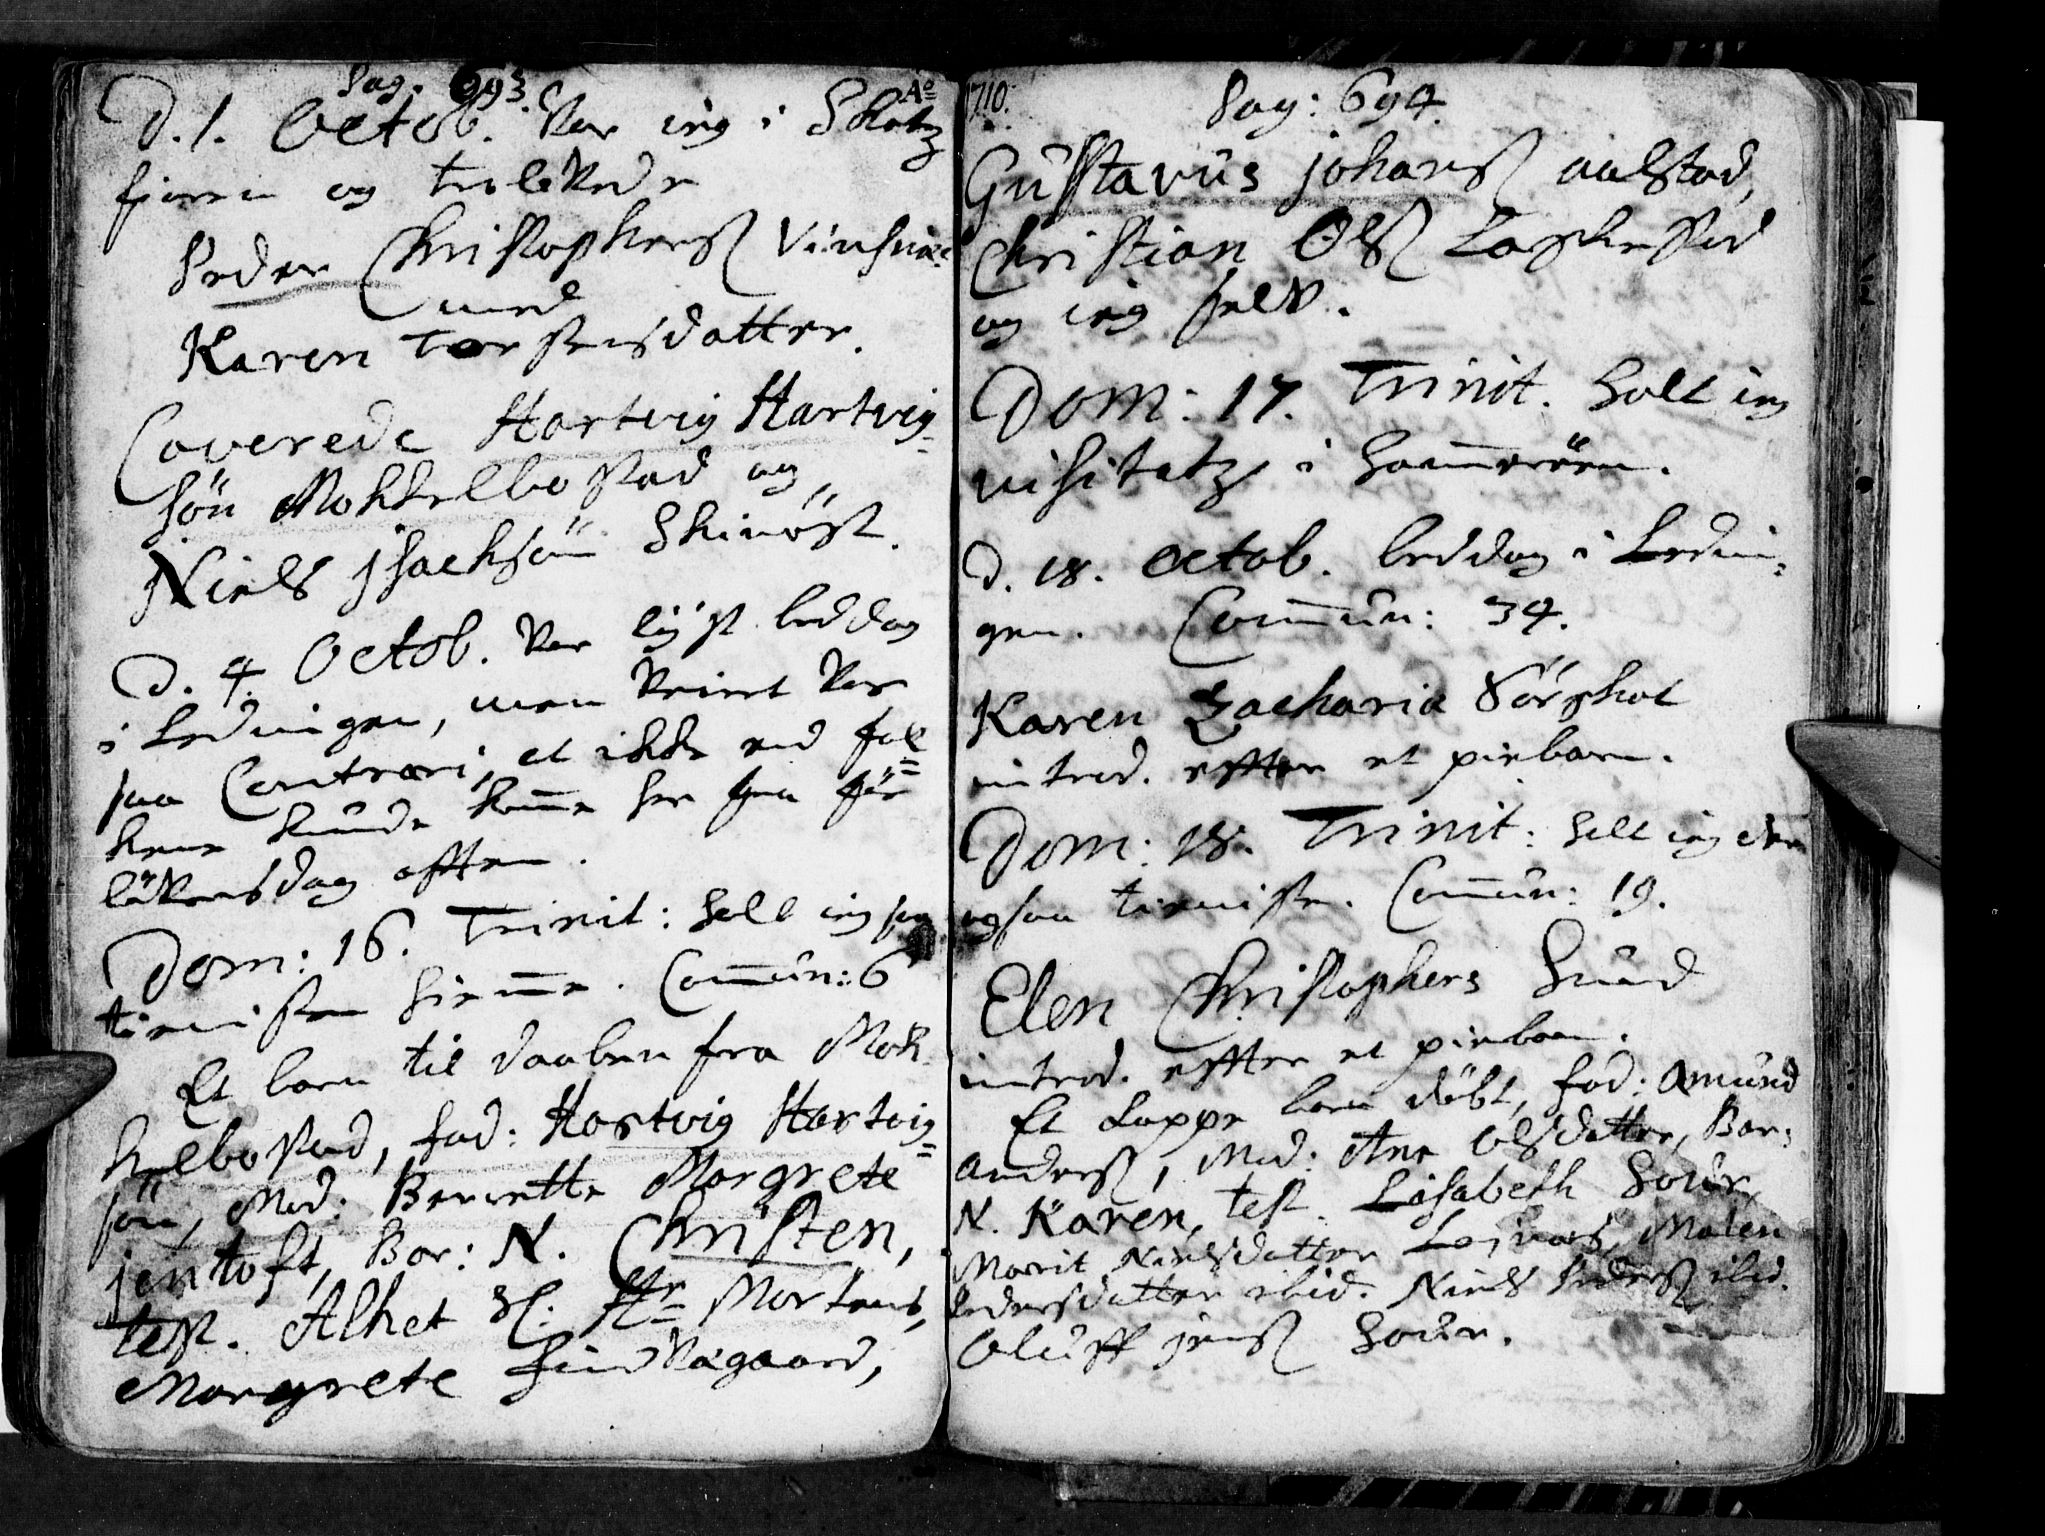 Pag. 693. Aº
D. 1. Octob. Var ieg i Skots
fioren og trolovede
Peder Christophers Vinsnæs
med
Karen Torstensdatter.
Caverede Hartvig Hartvig-
sön Mokkelbostad og
Niels Jsachsön
D. 4. Octob. Var lyst beddag
i Lødingen, men Veiret Var
saa Contrari, at ikke end fol-
kene kunde komme her fra för
löversdag afften.
Dom: 16. Trinit: holt ieg saa
tienisten hiemme. Commun: 6
Et barn til daaben fra Mok-
kelbostad, fad: Hartvig Hartvig-
sön, Mod: Berette Margrete
jentoft, Bar: N. Christen,
test. Alhet Sl. Hr Mortens,
Margrete Hind Vaagaard,
1710.
Pag: 694.
Gustavus johans aalstad,
Christian Ols
og ieg selv.
Dom: 17. Trinit. holt ieg
visitatz i Hammeröen.
D. 18. octob. beddag i Lødin-
gen. Commun: 34.
Karen Zacharia
introd. effter et piebarn.
Dom: 18. Trinit: holt ieg der
ogsaa tienisten. Commun: 19.
Elen Christophers Sund
introd. effter et piebarn.
Et Lappe barn döbt, fad: Amund
Anders, Mod: Ane Olsdatter, Bar:
N. Karen, test. Lisabeth
Marit Nielsdatter Malen
Pedersdatter ibid. Niels Peders ibid.
Oluff jens